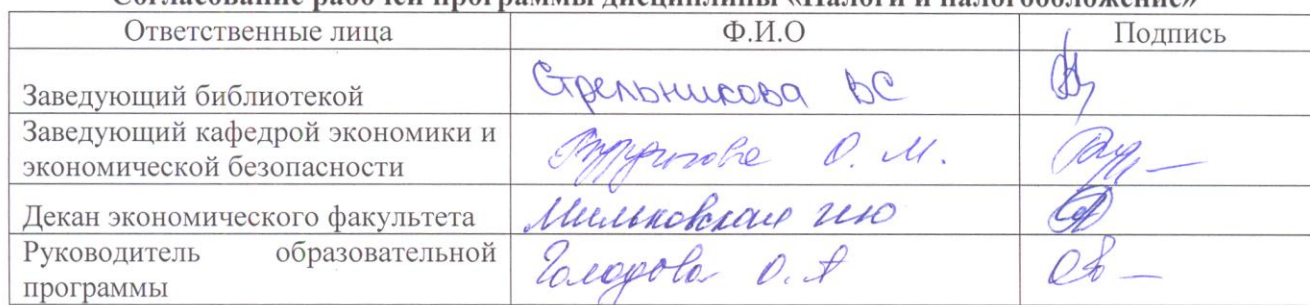 Согласование рабочей программы дисциплины «Налоги и налогообложение»
Ответственные лица Ф.И.О Подпись
Заведующий библиотекой Стрельникова ВС
Заведующий кафедрой экономики и
экономической безопасности О. М.
Декан экономического факультета Мильковская
Руководитель образовательной
программы Голодова О. А